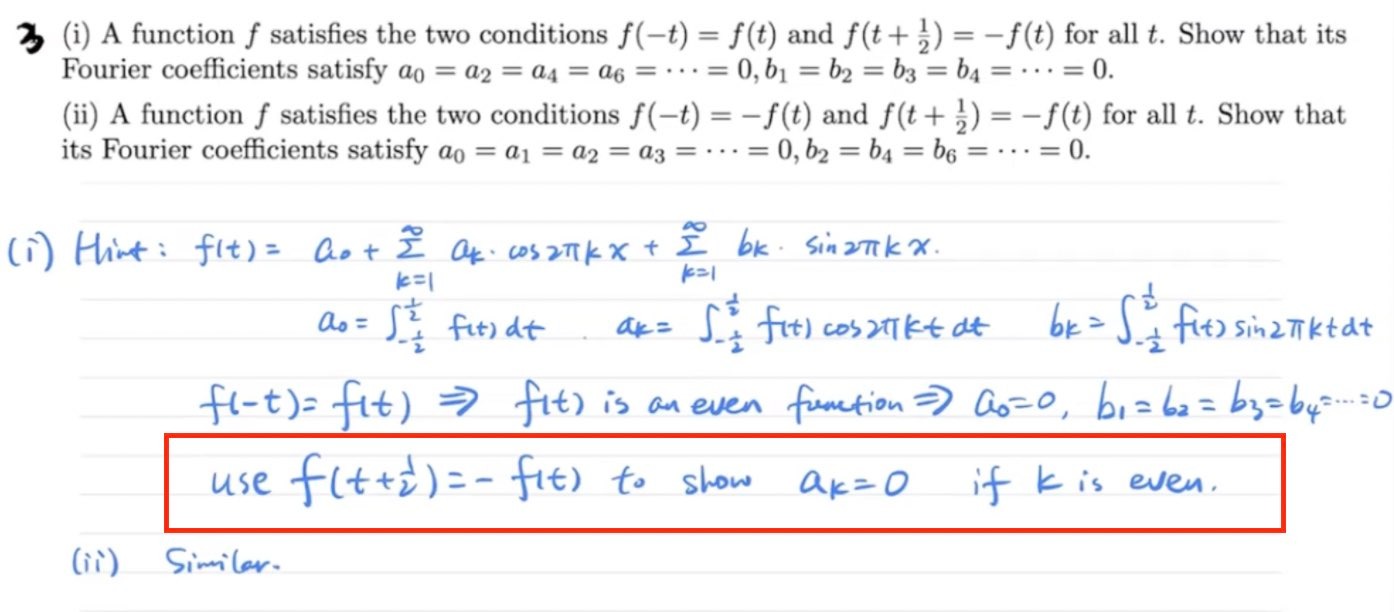 3 (i) A function f satisfies the two conditions f(−t) = f(t) and f(t + 1/2) = −f(t) for all t. Show that its
Fourier coefficients satisfy a₀ = a₂ = a₄ = a₆ = ⋯ = 0, b₁ = b₂ = b₃ = b₄ = ⋯ = 0.
(ii) A function f satisfies the two conditions f(−t) = −f(t) and f(t + 1/2) = −f(t) for all t. Show that
its Fourier coefficients satisfy a₀ = a₁ = a₂ = a₃ = ⋯ = 0, b₂ = b₄ = b₆ = ⋯ = 0.
(i) Hint : f(t) = a₀ + ∑_{k=1}^{∞} aₖ · cos 2πkx + ∑_{k=1}^{∞} bₖ · sin 2πkx.
a₀ = ∫_{-1/2}^{1/2} f(t) dt . aₖ = ∫_{-1/2}^{1/2} f(t) cos 2πkt dt bₖ = ∫_{-1/2}^{1/2} f(t) sin 2πkt dt
f(-t) = f(t) ⇒ f(t) is an even function ⇒ a₀=0, b₁ = b₂ = b₃ = b₄ = ⋯ = 0
use f(t + 1/2) = − f(t) to show aₖ = 0 if k is even.
(ii) Similar.